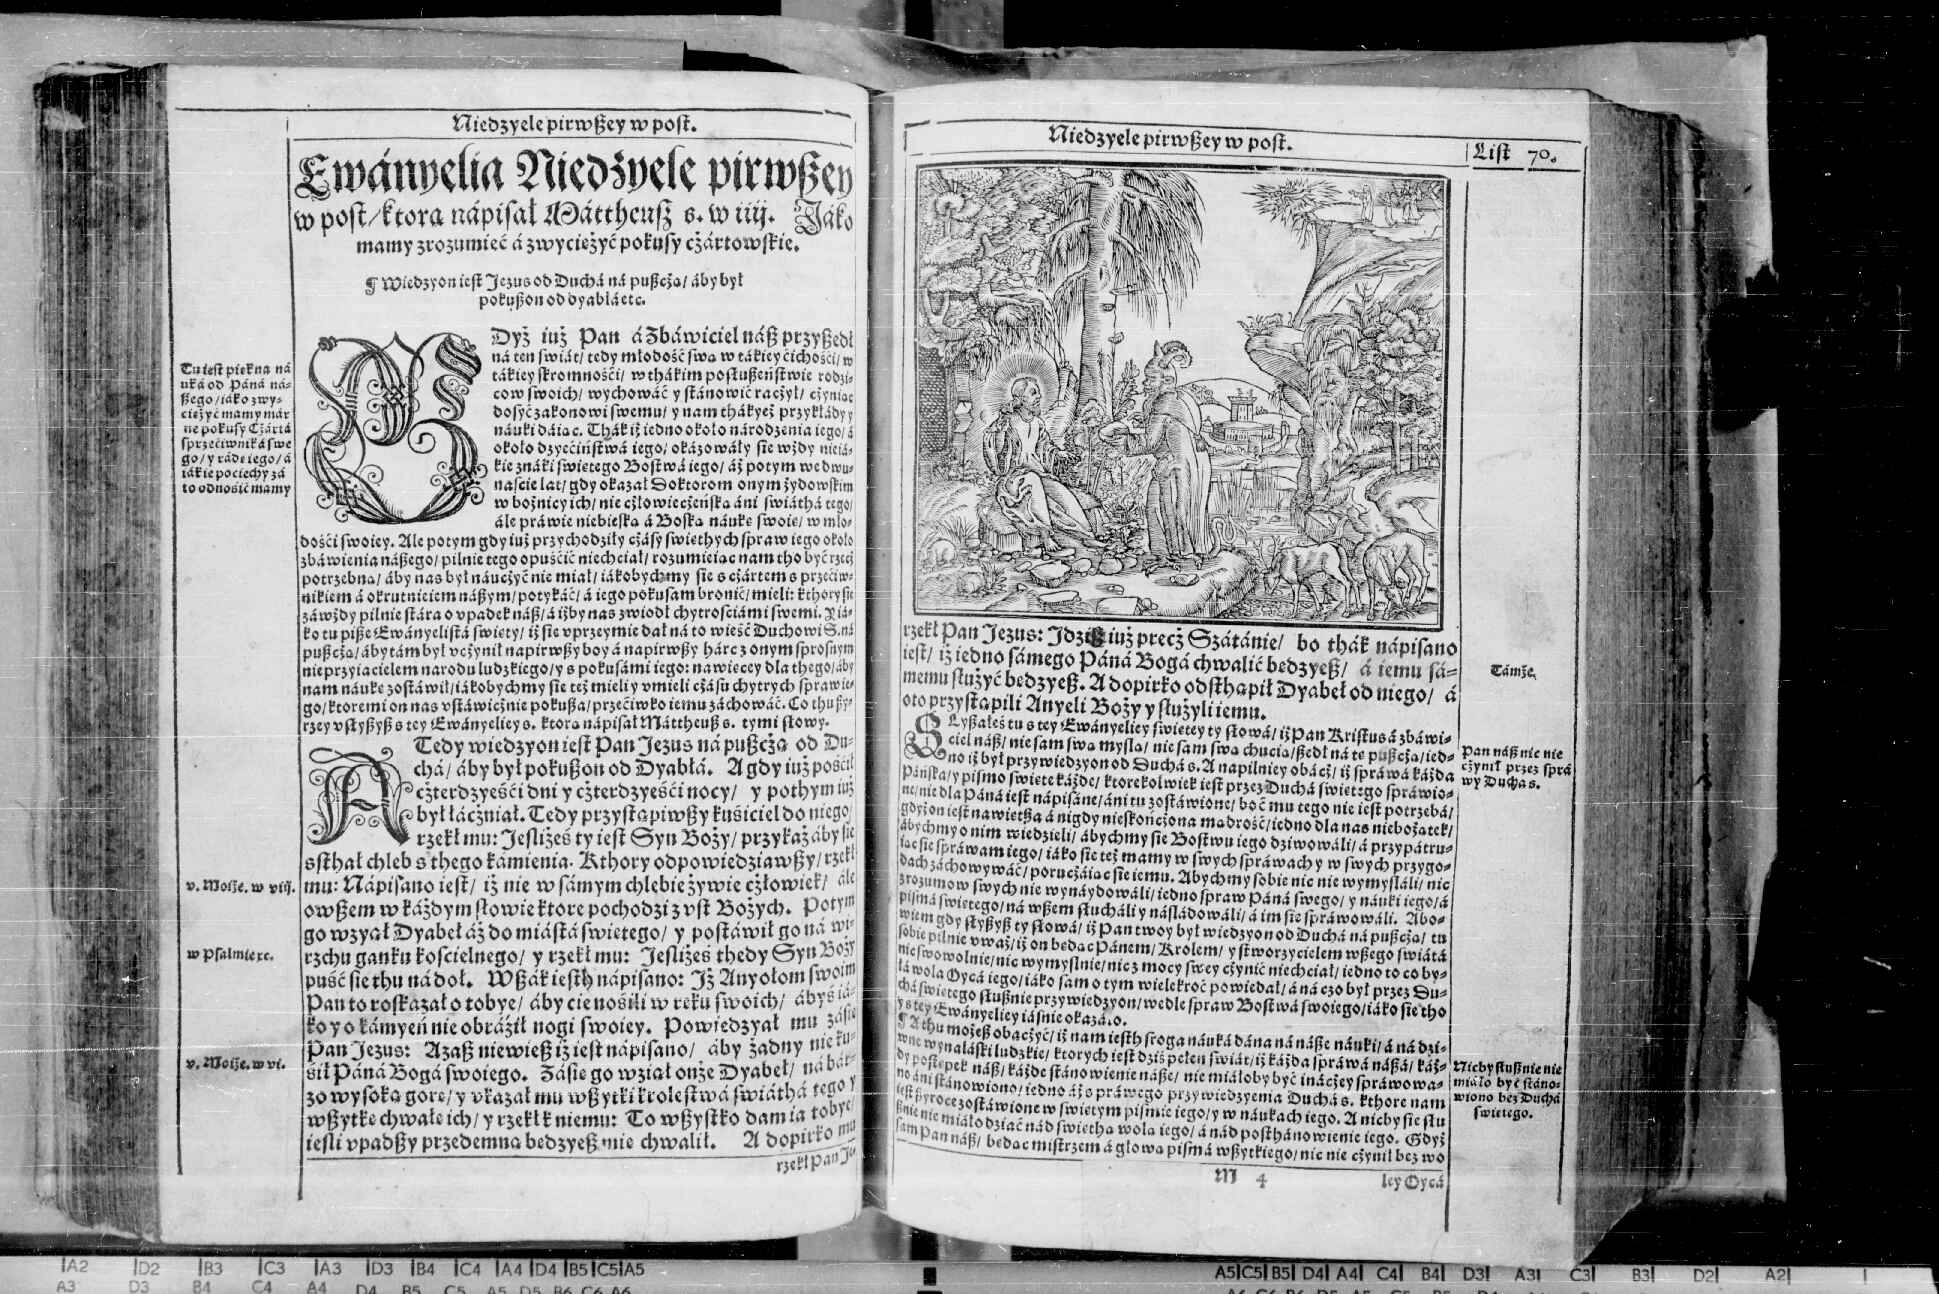 Niedzyele pirwßey w post.
Ewányelia Niedźyele pirwßey
w post/ ktora nápisał Máttheusz s. w iiij. Jáko
mamy zrozumieć á zwyciężyć pokusy cżártowskie.
¶ Wiedzyon iest Jezus od Duchá ná pußcżą/ áby był
pokußon od dyabłá etc.
Tu iest piękna ná
uká od Páná ná-
ßego/ iáko zwy-
ciężyć mamy már
ne pokusy Cżártá
sprzećiwniká swe
go/ y rádę iego/ á
iákie pociechy zá
to odnosić mamy
Dyż iuż Pan á Zbáwiciel náß przyßedł
ná ten świát/ tedy młodość swą w tákiey ćichości/ w
tákiey skromności/ w thákim posłußeństwie rodzi-
cow swoich/ wychowáć y stánowić racżył/ cżyniąc
dosyć zakonowi swemu/ y nam thákież przykłády y
náuki dáiąc. Thák iż iedno około národzenia iego/ á
około dzyećiństwá iego/ okázowáły się wżdy nieiá-
kie znáki świętego Bostwá iego/ áż potym we dwu-
naście lat/ gdy okazał Doktorom onym żydowskim
w bożnicy ich/ nie cżłowiecżeńską áni świáthá tego/
ále práwie niebieską á Boską náukę swoię/ w mło-
dości swoiey. Ale potym gdy iuż przychodziły cżásy świethych spraw iego około
zbáwienia nášego/ pilnie tego opuścić niechciał/ rozumieiąc nam tho być rzecż
potrzebną/ áby nas był náucżyć nie miał/ iákobychmy się s cżártem s przećiw-
nikiem á okrutnikiem náßym/ potykáć/ á iego pokusam bronić/ mieli: kthory się
záwżdy pilnie stára o vpadek náß/ á iżby nas zwiodł chytrościámi swemi. Y iá-
ko tu piße Ewányelistá święty/ iż się vprzeymie dał ná to wieść Duchowi S. ná
pußcżą/ áby tám był vcżynił napirwßy boy á napirwßy hárc z onym sprosnym
nieprzyiacielem narodu ludzkiego/ y s pokusámi iego: nawięcey dla thego/ áby
nam náukę zostáwił/ iákobychmy się też mieli y vmieli cżásu chytrych spraw ie-
go/ ktoremi on nas vstáwicżnie pokußa/ przećiwko iemu záchowáć. Co thu ßy-
rzey vsłyßyß s tey Ewányeliey s. ktorą nápisał Máttheuß s. tymi słowy.
Tedy wiedzyon iest Pan Jezus ná pußcżą od Du-
chá/ áby był pokußon od Dyabłá. A gdy iuż pościł
cżterdzyeści dni y cżterdzyeści nocy/ y pothym iuż
był łácżniał. Tedy przystąpiwßy kuśiciel do niego/
rzekł mu: Jesliżeś ty iest Syn Boży/ przykaż áby się
ssthał chleb s thego kámienia. Kthory odpowiedziawßy/ rzekł
v. Moiże. w viij.
mu: Nápisano iest/ iż nie w sámym chlebie żywie cżłowiek/ ále
owßem w káżdym słowie ktore pochodzi z vst Bożych. Potym
go wzyął Dyabeł áż do miástá świętego/ y postáwił go ná wi-
w Psalmie xc.
rzchu ganku kościelnego/ y rzekł mu: Jesliżeś thedy Syn Boży
puść się thu ná doł. Wßák iesth nápisano: Iż Anyołom swoim
Pan to roskazał o tobye/ áby cię nośili w ręku swoich/ ábyś iá-
ko y o kámyeń nie obráźił nogi swoiey. Powiedzyał mu zásię
v. Moiże. w vi.
Pan Jezus: Azaß niewieß iż iest nápisano/ áby żadny nie ku-
śił Páná Bogá swoiego. Zásię go wziął onże Dyabeł/ ná bár-
zo wysoką gorę/ y vkazał mu wßytki krolestwá świáthá tego y
wßytkę chwałę ich/ y rzekł k niemu: To wßystko dam ia tobye/
iesli vpadßy przedemną będzyeß mie chwalił. A dopirko mu
rzekł Pan Je-
Niedzyele pirwßey w post.
List 70.
rzekł Pan Jezus: Jdzię iuż precż Szátánie/ bo thák nápisano
iest/ iż iedno sámego Páná Bogá chwalić będzyeß/ á iemu sá-
Támże.
memu służyć będzyeß. A dopirko odsthąpił Dyabeł od niego/ á
oto przystąpili Anyeli Boży y służyli iemu.
Słyßałeś tu s tey Ewányeliey świętey ty słowá/ iż Pan Kristus á zbáwi-
ciel náß/ nie sam swą myślą/ nie sam swą chucią/ ßedł ná tę pußcżą/ ied-
no iż był przywiedzyon od Duchá s. A napilniey obácż/ iż spráwá káżda
Pan náß nic nie
cżynił przez sprá
wy Duchá s.
Páńska/ y pismo święte káżde/ ktorekolwiek iest przez Duchá świętego spráwio-
ne/ nie dla Páná iest nápisáne/ áni tu zostáwione/ boć mu tego nie iest potrzebá/
gdyż on iest nawiętßa á nigdy nieskońcżona mądrość/ iedno dla nas niebożątek/
ábychmy o nim wiedzieli/ ábychmy się Bostwu iego dziwowáli/ á przypátru-
iąc się spráwam iego/ iáko się też mamy w swych spráwach y w swych przygo-
dach záchowywáć/ porucżáiąc się iemu. Abychmy sobie nic nie wymyśláli/ nic
zrozumow swych nie wynáydowáli/ iedno spraw Páná swego/ y náuki iego/ á
pismá świętego/ ná wßem słucháli y násládowáli/ á im się spráwowáli. Abo-
wiem gdy słyßyß ty słowá/ iż Pan twoy był wiedzyon od Duchá ná pußcżą/ tu
sobie pilnie vważ/ iż on będąc Pánem/ Krolem/ y stworzycielem wßego świátá
nie swowolnie/ nic wymyślnie/ nic z mocy swey cżynić niechciał/ iedno to co by-
łá wola Oycá iego/ iáko sam o tym wielekroć powiedał/ á ná czo był przez Du-
chá świętego słußnie przywiedzyon/ wedle spraw Bostwá swoiego/ iáko się tho
y s tey Ewányeliey iáśnie okazáło.
¶ A thu możeß obácżyć/ iż nam iesth sroga náuká dána ná náße náuki/ á ná dzi-
wne wynaláski ludzkie/ ktorych iest dziś pełen świát/ iż káżda spráwá náßá/ káż-
Nicby słußnie nie
miáło być stáno-
wiono bez Duchá
świętego.
dy postępek náß/ káżde stánowienie náße/ nie miáłoby być inácżey spráwowá-
no áni stánowiono/ iedno áż s práwego przywiedzyenia Duchá s. kthore nam
iest ßyroce zostáwione w świętym piśmie iego/ y w náukach iego. A nicby się słu
ßnie nie miáło dziać nád świethą wolą iego/ á nád posthánowienie iego. Gdyż
sam Pan náß/ będąc mistrzem á głową pismá wßytkiego/ nic nie cżynił bez wo
M 4
ley Oycá
A2 D2 B3 C3 A3 D3 B4 C4 A4 D4 B5 C5 A5
A5 C5 B5 D4 A4 C4 B4 D3 A3 C3 B3 D2 A2
A3 D3 B4 C4 A4 D4 B5 C5 A5 D5 B6 C6 A6